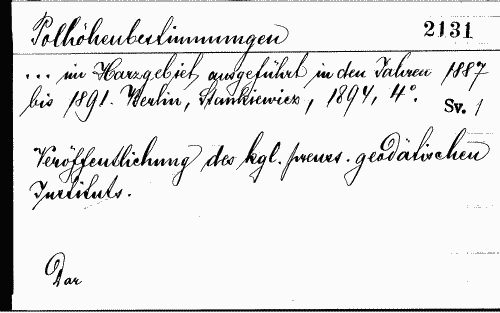 Polhöhenbestimmungen 2131
... im Harzgebiet, ausgeführt in den Jahren 1887
bis 1891. Berlin, Stankiewicz, 1894, 4°. Sv. 1
Veröffentlichung des kgl. preuss. geodätischen
Instituts.
Dar